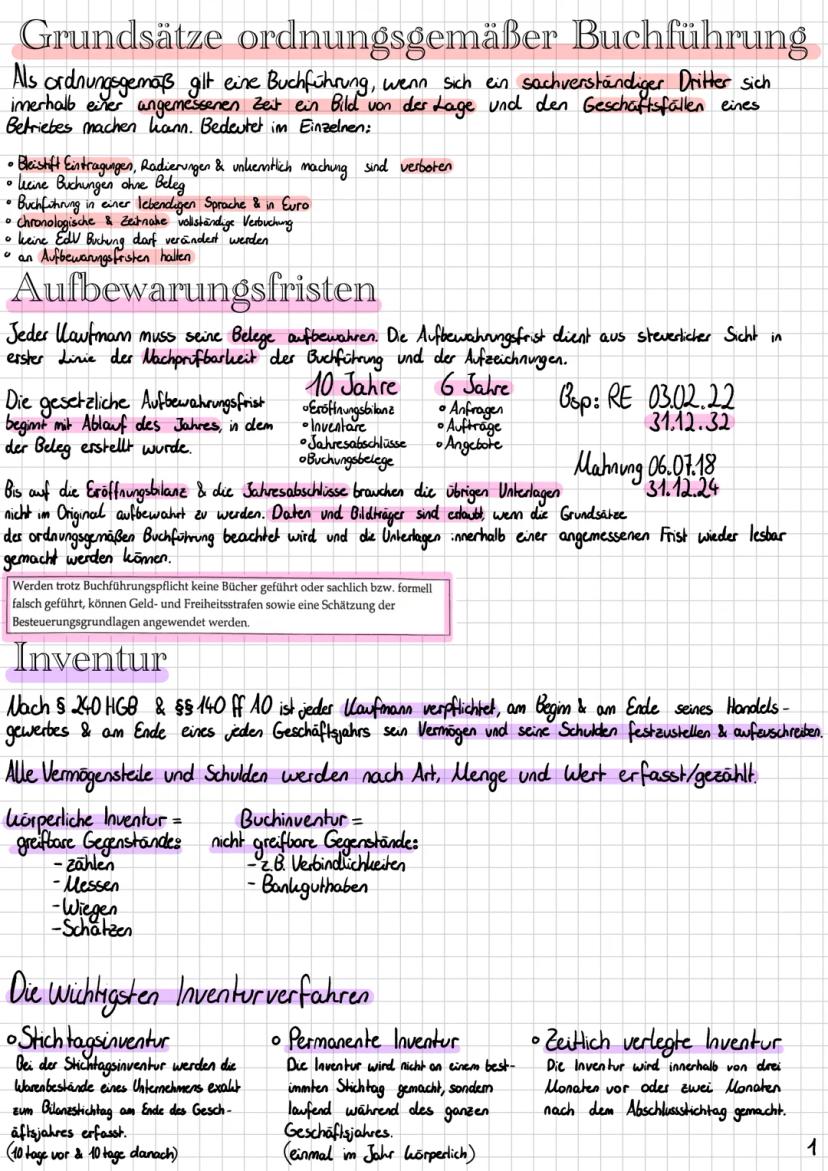 Grundsätze ordnungsgemäßer Buchführung
Als ordnungsgemäß gilt eine Buchführung, wenn sich ein sachverständiger Dritter sich
innerhalb einer angemessenen Zeit ein Bild von der Lage und den Geschäftsfällen eines
Betriebes machen kann. Bedeutet im Einzelnen:
• Bleistift Eintragungen, Radierungen & unkenntlich machung sind verboten
• keine Buchungen ohne Beleg
• Buchführung in einer lebendigen Sprache & in Euro
• chronologische & Zeitnahe vollständige Verbuchung
• keine EdV Buchung darf verändert werden
• an Aufbewarungsfristen halten
Aufbewarungsfristen
Jeder Kaufmann muss seine Belege aufbewahren. Die Aufbewahrungsfrist dient aus steuerlicher Sicht in
erster Linie der Nachprüfbarkeit der Buchführung und der Aufzeichnungen.
Die gesetzliche Aufbewahrungsfrist
beginnt mit Ablauf des Jahres, in dem
der Beleg erstellt wurde.
10 Jahre
• Eröffnungsbilanz
• Inventare
• Jahresabschlüsse
• Buchungsbelege
6 Jahre
• Anfragen
• Aufträge
• Angebote
Bsp: RE 03.02.22
31.12.32
Mahnung 06.07.18
31.12.24
Bis auf die Eröffnungsbilanz & die Jahresabschlüsse brauchen die übrigen Unterlagen
nicht im Original aufbewahrt zu werden. Daten und Bildträger sind erlaubt, wenn die Grundsätze
der ordnungsgemäßen Buchführung beachtet wird und die Unterlagen innerhalb einer angemessenen Frist wieder lesbar
gemacht werden können.
Werden trotz Buchführungspflicht keine Bücher geführt oder sachlich bzw. formell
falsch geführt, können Geld- und Freiheitsstrafen sowie eine Schätzung der
Besteuerungsgrundlagen angewendet werden.
Inventur
Nach § 240 HGB & §§ 140 ff AO ist jeder Kaufmann verpflichtet, am Begin & am Ende seines Handels-
gewerbes & am Ende eines jeden Geschäftsjahrs sein Vermögen und seine Schulden festzustellen & aufzuschreiben.
Alle Vermögensteile und Schulden werden nach Art, Menge und Wert erfasst/gezählt.
Körperliche Inventur =
greifbare Gegenstände:
- zählen
- Messen
- Wiegen
- Schätzen
Buchinventur =
nicht greifbare Gegenstände:
- z.B. Verbindlichkeiten
- Bankguthaben
Die Wichtigsten Inventurverfahren
• Stichtagsinventur
Bei der Stichtagsinventur werden die
Warenbestände eines Unternehmens exakt
zum Bilanzstichtag am Ende des Gesch-
äftsjahres erfasst.
(10 tage vor & 10 tage danach)
• Permanente Inventur
Die Inventur wird nicht an einem best-
immten Stichtag gemacht, sondern
laufend während des ganzen
Geschäftsjahres.
(einmal im Jahr körperlich)
• Zeitlich verlegte Inventur
Die Inventur wird innerhalb von drei
Monaten vor oder zwei Monaten
nach dem Abschlussstichtag gemacht.
1